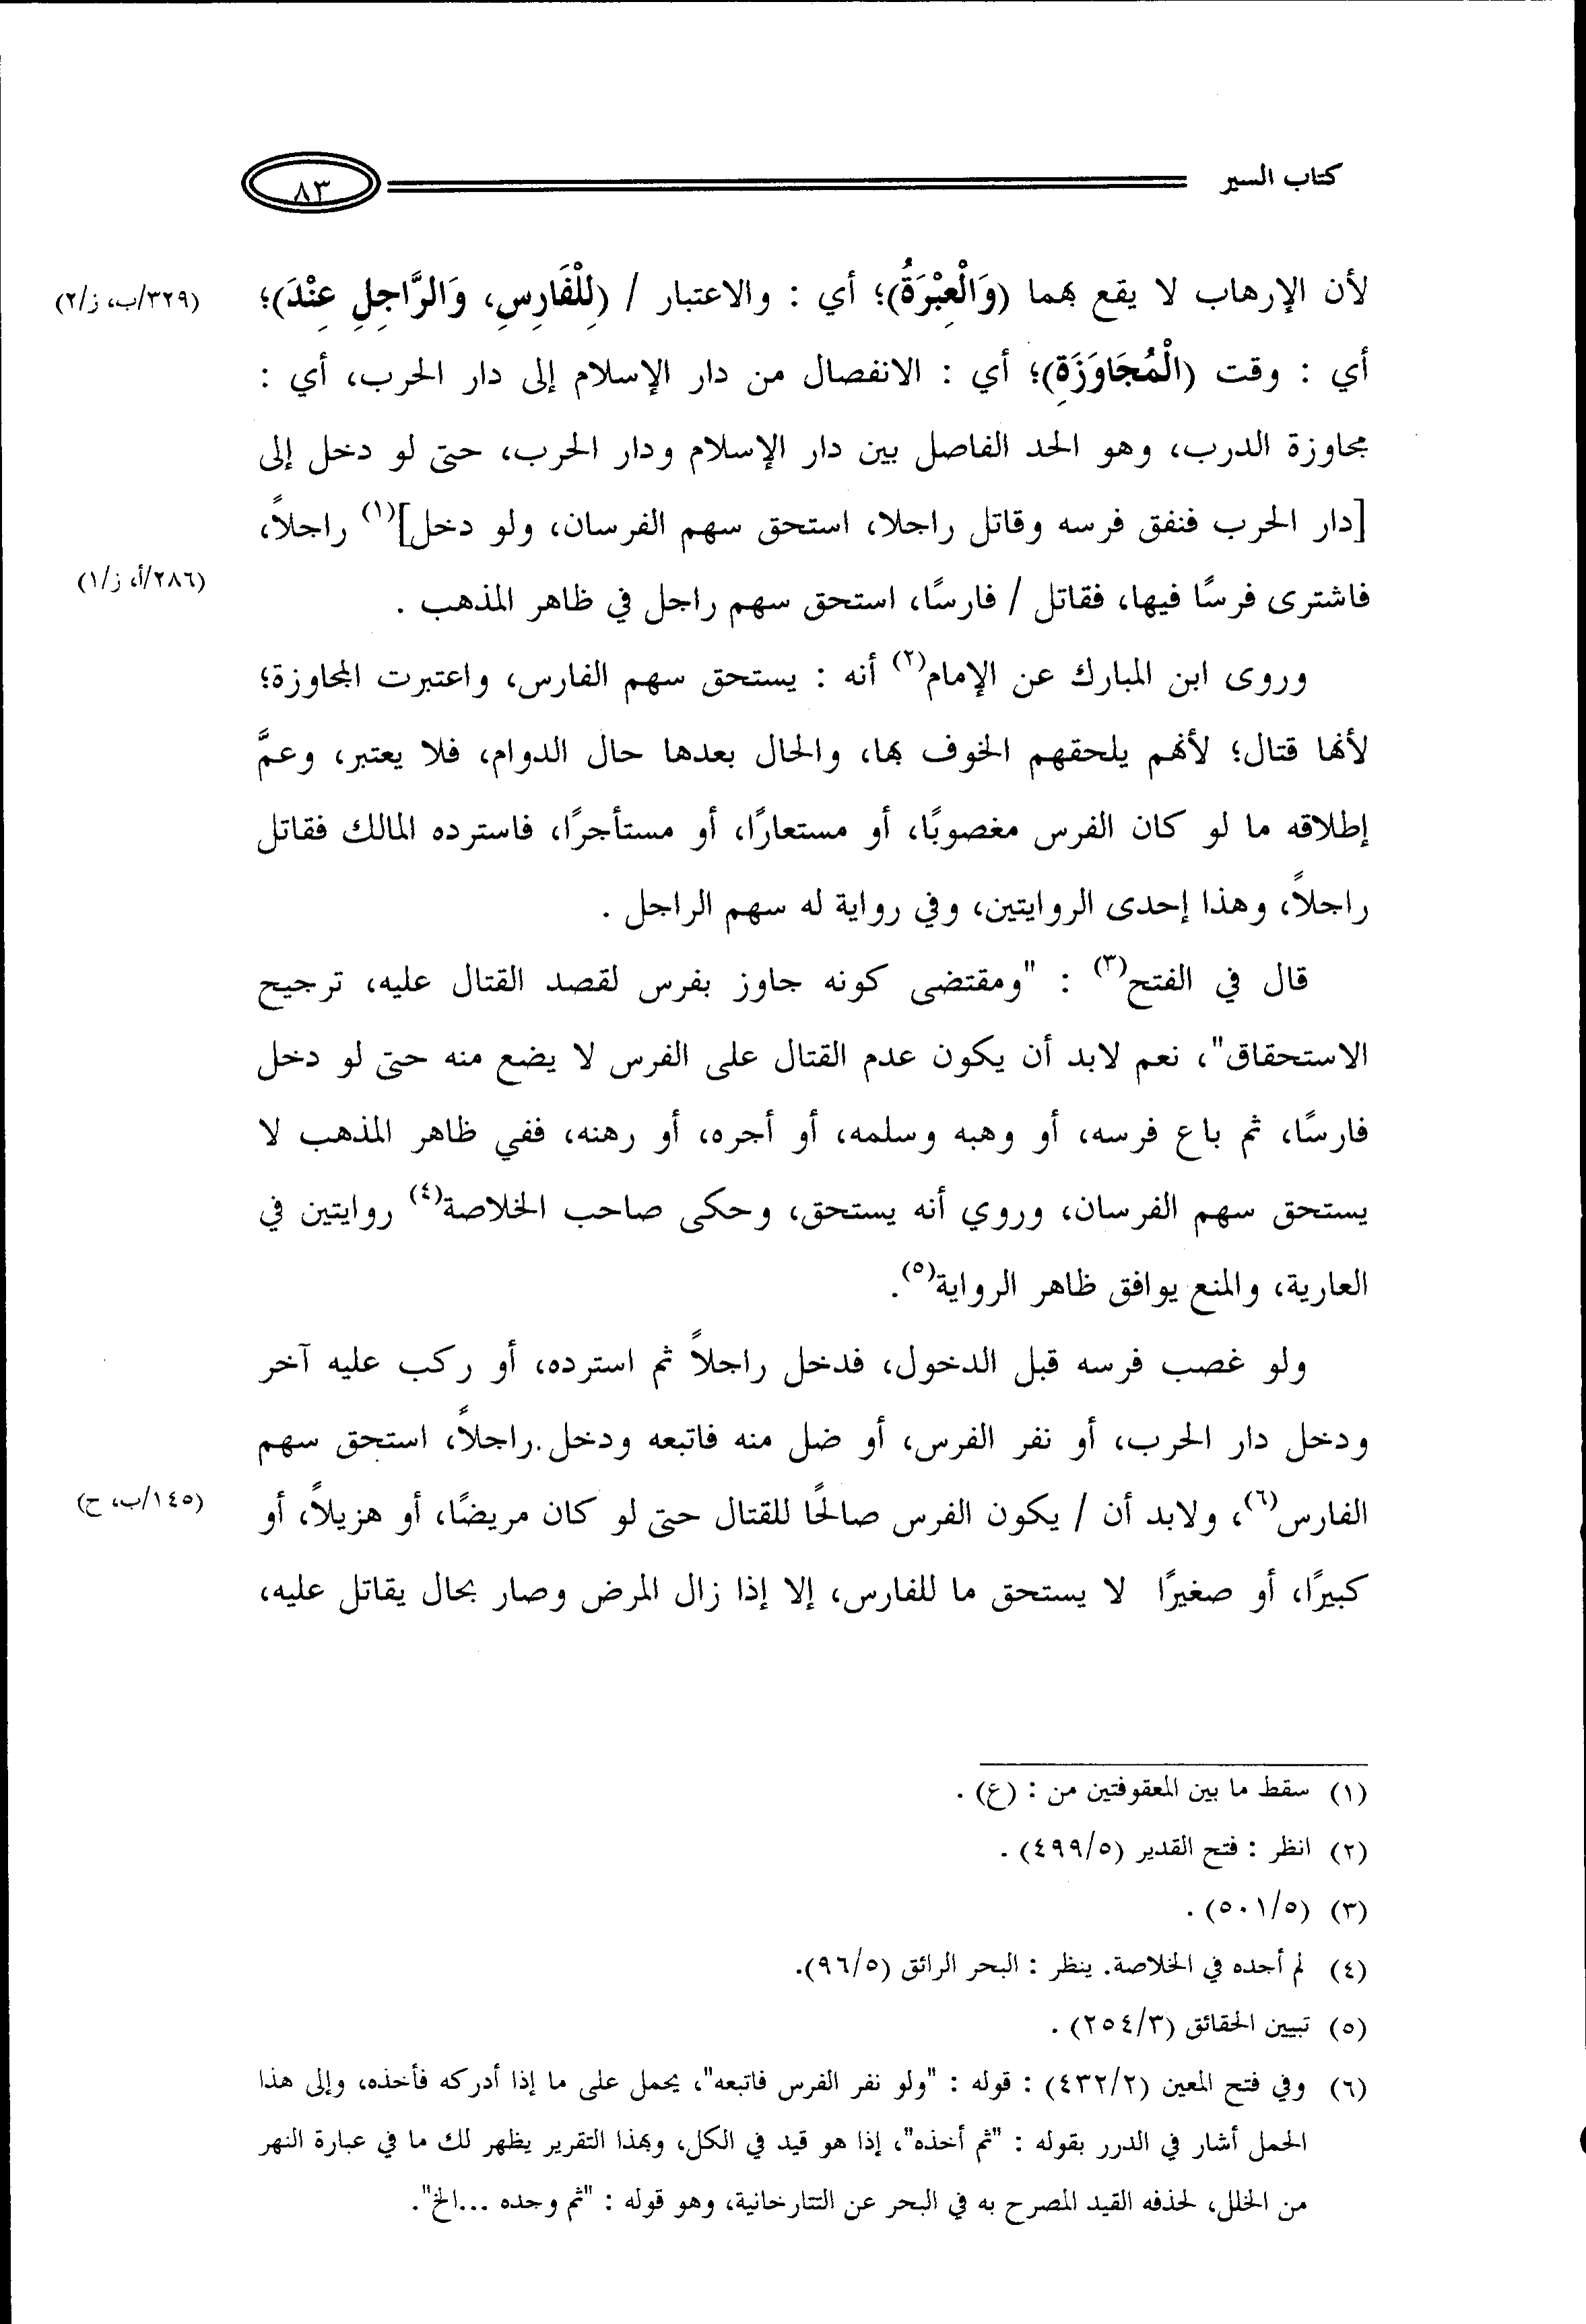 كتاب السير
٨٣
لأن الإرهاب لا يقع بهما (وَالْعِبْرَةُ)؛ أي : والاعتبار / (لِلْفَارِسِ، وَالرَّاجِلِ عِنْدَ)؛
(٣٢٩/ب، ز/٢)
أي : وقت (الْمُجَاوَزَةِ)؛ أي : الانفصال من دار الإسلام إلى دار الحرب، أي :
مجاوزة الدرب، وهو الحد الفاصل بين دار الإسلام ودار الحرب، حتى لو دخل إلى
[دار الحرب فنفق فرسه وقاتل راجلا، استحق سهم الفرسان، ولو دخل](١) راجلاً،
فاشترى فرسًا فيها، فقاتل / فارسًا، استحق سهم راجل في ظاهر المذهب .
(٢٨٦/أ، ز/١)
وروى ابن المبارك عن الإمام(٢) أنه : يستحق سهم الفارس، واعتبرت المجاوزة؛
لأنها قتال؛ لأنهم يلحقهم الخوف بها، والحال بعدها حال الدوام، فلا يعتبر، وعمَّ
إطلاقه ما لو كان الفرس مغصوبًا، أو مستعارًا، أو مستأجرًا، فاسترده المالك فقاتل
راجلاً، وهذا إحدى الروايتين، وفي رواية له سهم الراجل .
قال في الفتح(٣) : "ومقتضى كونه جاوز بفرس لقصد القتال عليه، ترجيح
الاستحقاق"، نعم لابد أن يكون عدم القتال على الفرس لا يضع منه حتى لو دخل
فارسًا، ثم باع فرسه، أو وهبه وسلمه، أو أجره، أو رهنه، ففي ظاهر المذهب لا
يستحق سهم الفرسان، وروي أنه يستحق، وحكى صاحب الخلاصة(٤) روايتين في
العارية، والمنع يوافق ظاهر الرواية(٥).
ولو غصب فرسه قبل الدخول، فدخل راجلاً ثم استرده، أو ركب عليه آخر
ودخل دار الحرب، أو نفر الفرس، أو ضل منه فاتبعه ودخل.راجلاً، استحق سهم
الفارس(٦)، ولابد أن / يكون الفرس صالحًا للقتال حتى لو كان مريضًا، أو هزيلاً، أو
(١٤٥/ب، ح)
كبيرًا، أو صغيرًا لا يستحق ما للفارس، إلا إذا زال المرض وصار بحال يقاتل عليه،
(١) سقط ما بين المعقوفتين من : (ع) .
(٢) انظر : فتح القدير (٤٩٩/٥) .
(٣) (٥٠١/٥) .
(٤) لم أجده في الخلاصة. ينظر : البحر الرائق (٩٦/٥).
(٥) تبيين الحقائق (٢٥٤/٣) .
(٦) وفي فتح المعين (٤٣٢/٢) : قوله : "ولو نفر الفرس فاتبعه"، يحمل على ما إذا أدركه فأخذه، وإلى هذا
الحمل أشار في الدرر بقوله : "ثم أخذه"، إذا هو قيد في الكل، وبهذا التقرير يظهر لك ما في عبارة النهر
من الخلل، لحذفه القيد المصرح به في البحر عن التتارخانية، وهو قوله : "ثم وجده ...الخ".